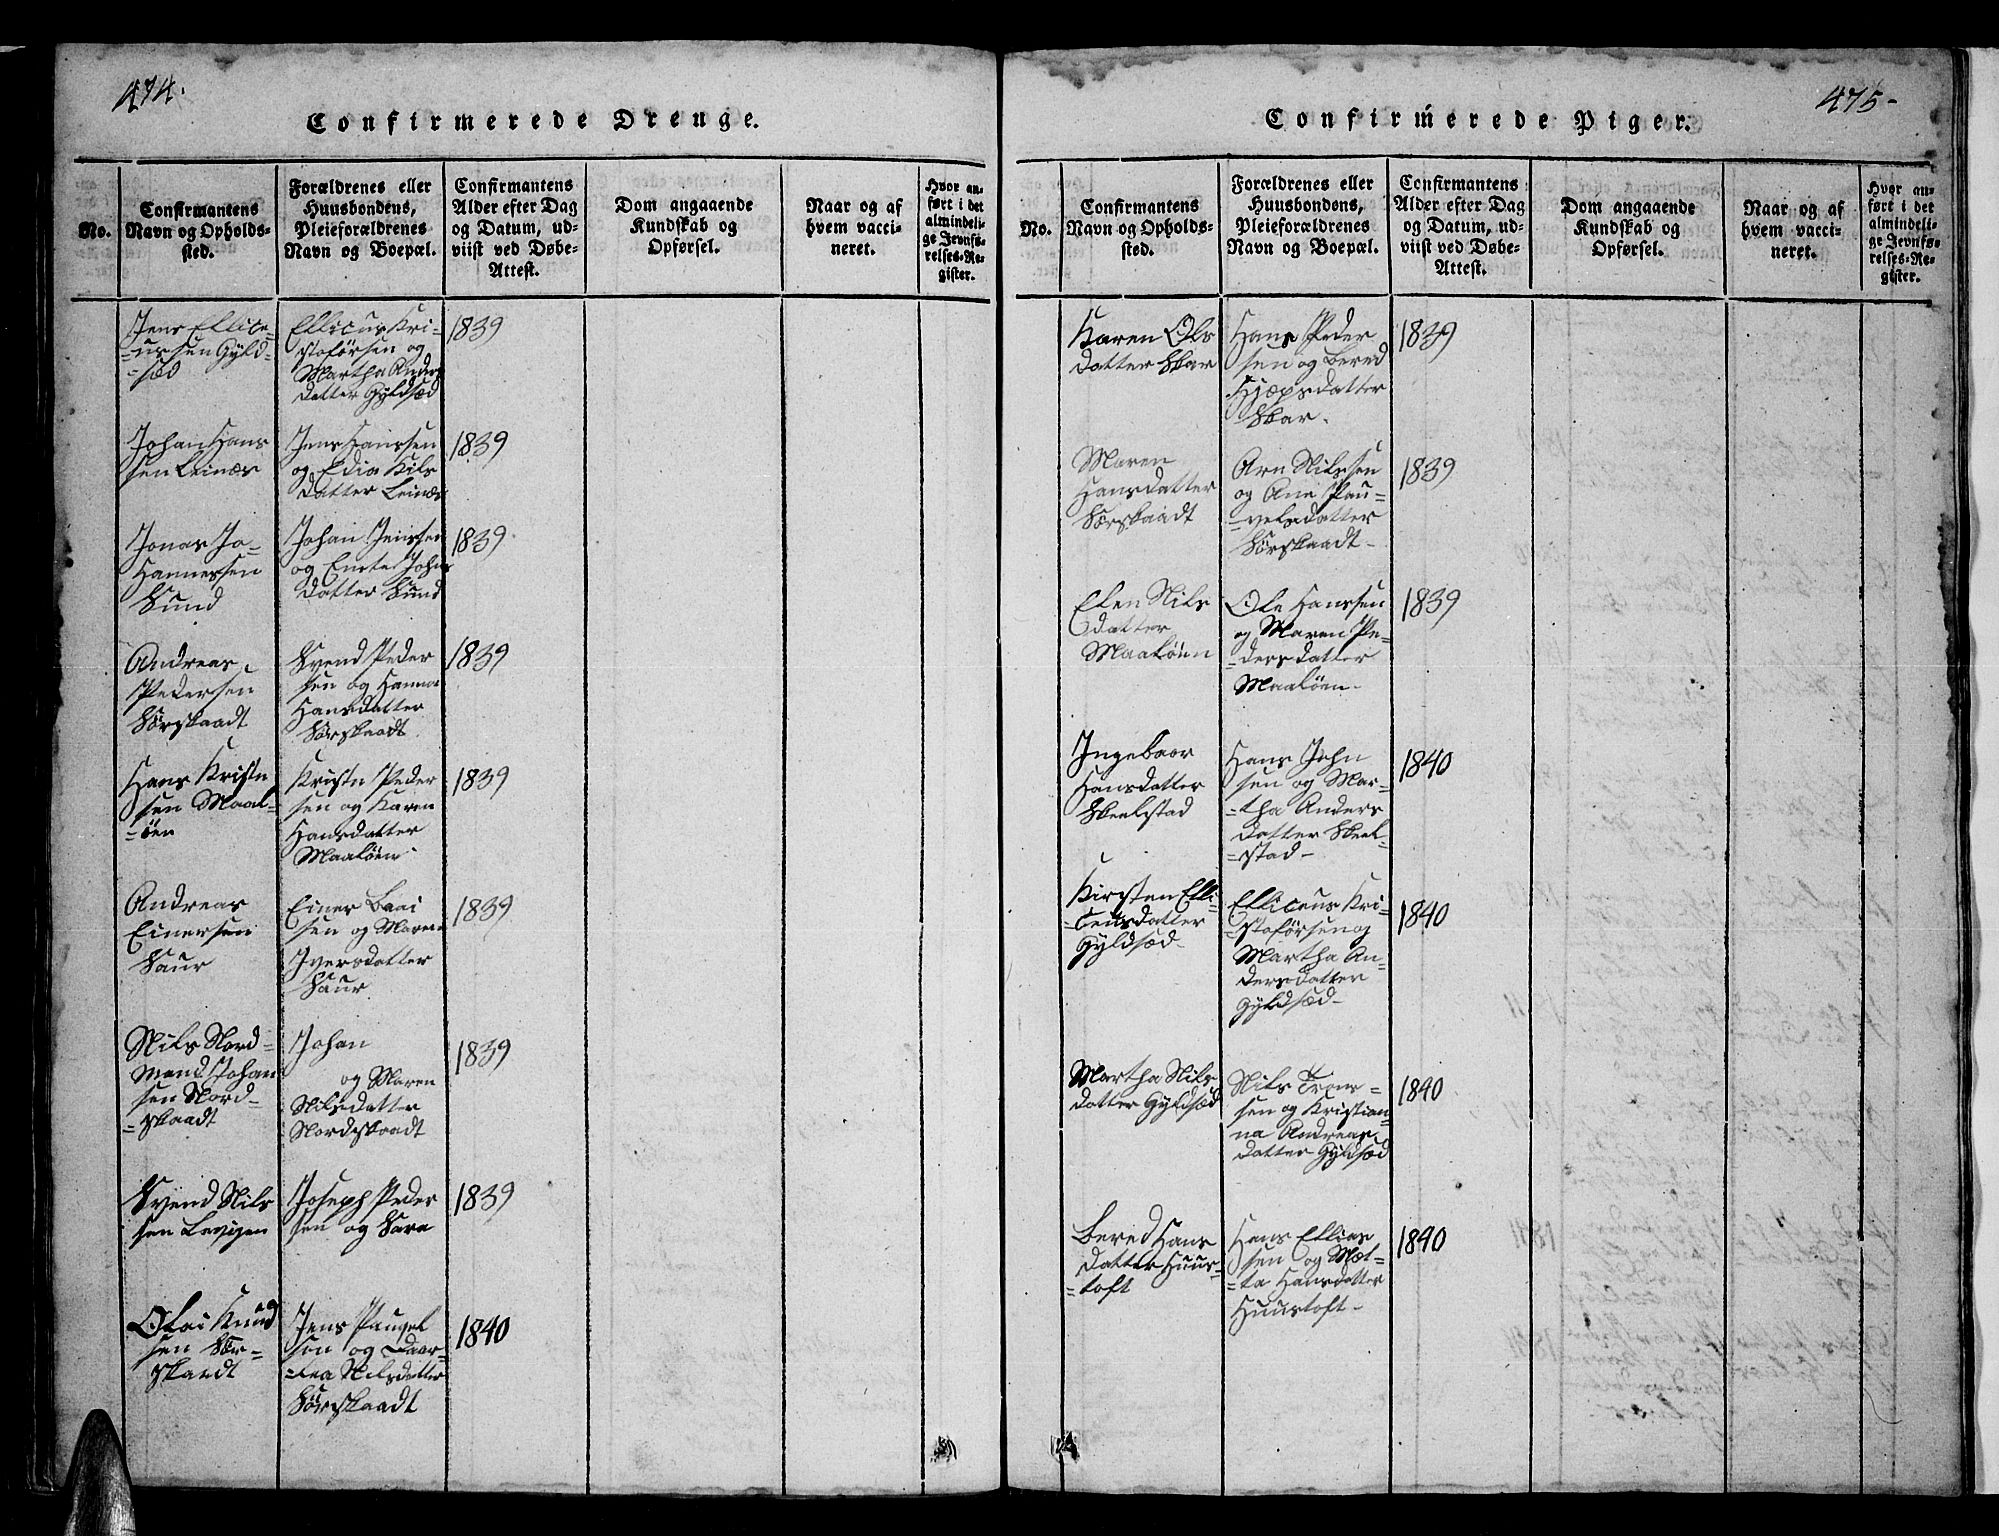 474.
Confirmerede Drenge.
No.
Confirmantens
Navn og Opholds-
sted.
Forældrenes eller
Huusbondens,
Pleieforældrenes
Navn og Boepæl.
Confirmantens
Alder efter Dag
og Datum, ud-
viist ved Døbe-
Attest.
Dom angaaende
Kundskab og
Opførsel.
Naar og af
hvem vacci-
neret.
Hvor an-
ført i det
almindeli-
ge Jevnfø-
relses-Re-
gister.
Jens Ellice-
=ussen Gyld-
=sæd
Ellicus Kri-
stofersen og
Martha Anders
datter Gyldsæd
1839
Johan Hans
sen Leinæs
Jens Hanssen
og Edia Nils
datter Leinæs
1839
Jonas Jo-
Hannessen
Sund
Johan Jenssen
og Johns
datter Sund
1839
Andreas
Pedersen
Sørskaadt
Svend Peder
sen og Hanna
Hansdatter
Sørskaadt
1839
Hans Kristn
sen Maal-
=öen
Kristn Peder
sen og Karen
Hansdatter
Maalöen
1839
Andreas
Einersen
Saur
Einer Baai
sen og Maren
Iversdatter
Saur
1839
Nils Nord=
mand Johan
sen Nord=
=skaadt
Johan
og Maren
Nilsdatter
Nordskaadt
1839
Svend Nils
sen
Joseph Peder
sen og Sara
1839
Olai Knud
sen Sør-
skaadt
Jens Paugel
sen og Daar-
=tea Nilsdatter
Sørskaadt
1840
475-
Confirmerede Piger.
No.
Confirmantens
Navn og Opholds-
sted.
Forældrenes eller
Huusbondens,
Pleieforældrenes
Navn og Boepæl.
Confirmantens
Alder efter Dag
og Datum, ud-
viist ved Døbe-
Attest.
Dom angaaende
Kundskab og
Opførsel.
Naar og af
hvem vacci-
neret.
Hvor an-
ført i det
almindeli-
ge Jevnfø-
relses-Re-
gister.
Karen Ols
datter Skar
Hans Peder
sen og Bered
datter
Skar.
1839
Maren
Hansdatter
Sørskaadt
Arn Nilssen
og Ane Pau-
=velsdatter
Sørskaadt-
1839
Elen Nils
datter
Maalöen
Ole Hanssen
og Maren Pe-
=dersdatter
Maalöen-
1839
Ingeboor
Hansdatter
Skeelstad
Hans John
sen og Mar-
=tha Anders
datter Skeel-
=stad-
1840
Kirsten Elli-
=ceusdatter
Gyldsæd
Elliceus Kri-
=stofersen og
Martha An-
dersdatter
Gyldsæd-
1840
Martha Nils
datter Gyldsæd
Nils Trons-
sen og Kristian-
na Andreas
datter Gyldsæd
1840
Bered Hans
datter Huus-
=toft
Hans Ellias
sen og Mæt-
=ta Hansdatter
Huustoft-
1840